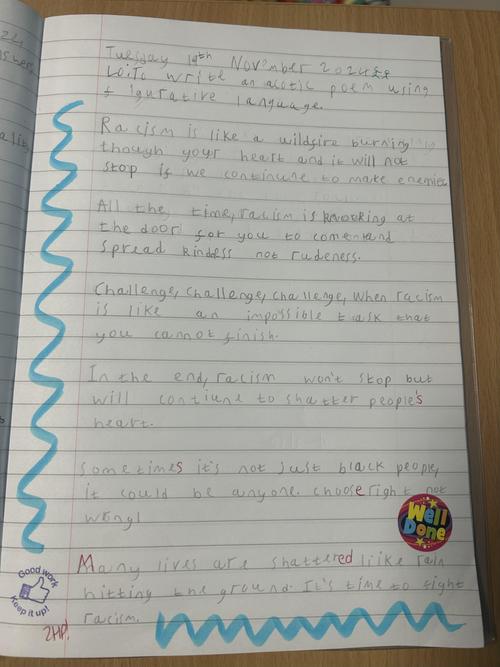 Tuesday 19th November 2024
LO:To write an acotic poem using
figurative language.
Racism is like a wildfire burning
though your heart and it will not
stop if we contiune to make enemies
All the, time, racism is knooking at
the door for you to come and
spread kindess not rudeness.
Challenge, challenge, challenge, when racism
is like an impossible task that
you cannot finish.
In the end, racism won't stop but
will contiune to shatter people's
heart.
Sometimes it's not just black people,
it could be anyone. choose right not
wrong!
Well
Done
Many lives are shattered like rain
hitting the ground. It's time to fight
racism.
Good work
Keep it up!
2HP!